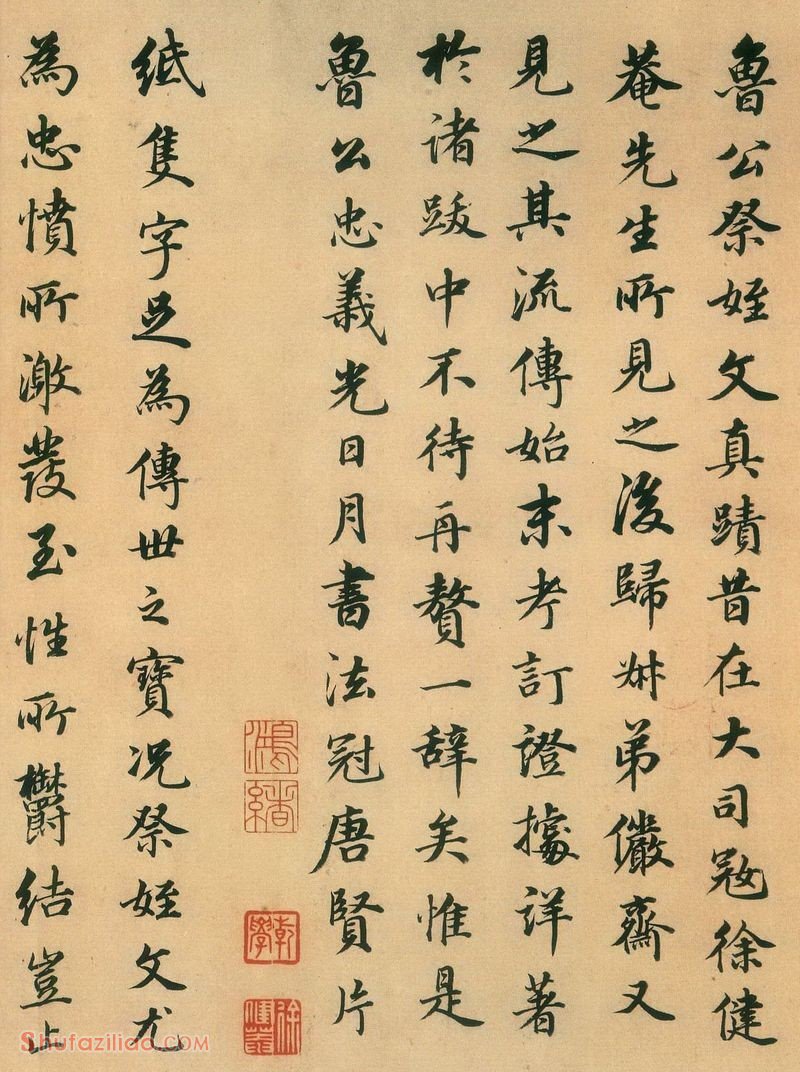 魯公祭姪文真蹟昔在大司寇徐健
菴先生所見之後歸叔弟儼齋又
見之其流傳始末考訂證據詳著
於諸跋中不待再贅一辭矣惟是
魯公忠義光日月書法冠唐賢片
鴻緒
乾學
紙隻字足為傳世之寶況祭姪文尤
為忠憤所激發至性所鬱結豈止
Shufaziliao.com